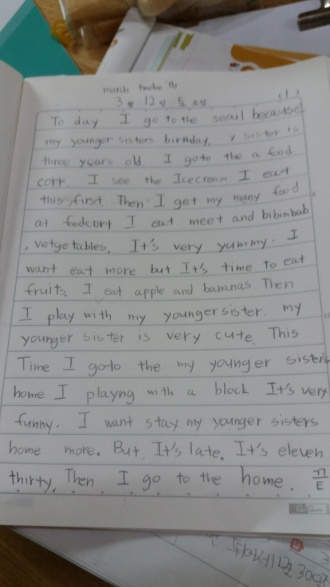 march twelve th
3월 12일
To day I go to the seoul because
my younger sisters birthday. Y sister is
three years old. I goto the a food
cort. I see the Icecream I eat
this first Then I get my many food
at fodcort I eat meet and bibimbab
, vetgetables. It's very yummy. I
want eat more but It's time to eat
fruits, I eat apple and bananas. Then
I play with my youngersister. my
younger sister is very cute. This
Time I goto the my younger sisters
home I playng with a block It's very
funny. I want stay my younger sisters
home more. But It's late. It's eleven
thirty, Then I go to the home.